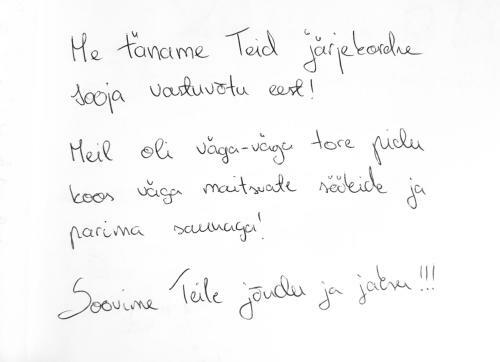 Me täname Teid järjekordse
sooja vastuvõtu eest!
Meil oli väga-väga tore pidu
koos väga maitsvate söökide ja
parima saunaga!
Soovime Teile jõudu ja jaksu!!!